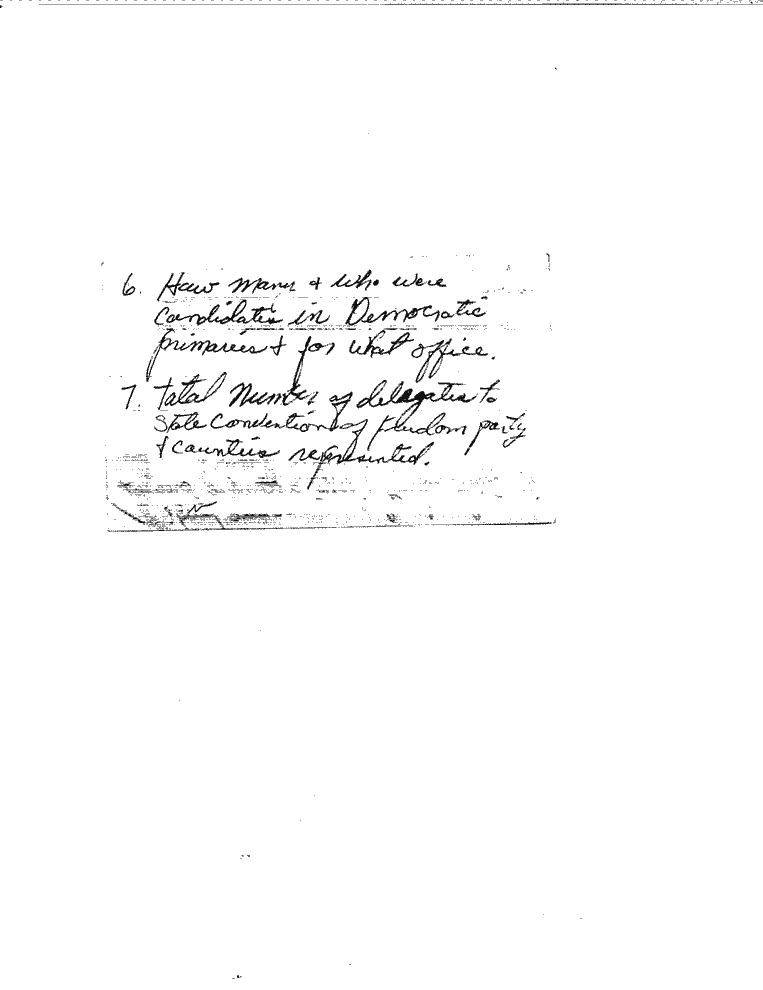 6. How many + who were
Candidates in Democratic
primaries + for what office.
7. Total Number of delegates to
State Convention of freedom party
+ Counties represented.